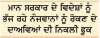 ਮਾਨ ਸਰਕਾਰ ਦੇ ਵਿਦੇਸ਼ਾਂ ਨੂੰ
ਭੱਜ ਰਹੇ ਨੌਜਵਾਨਾਂ ਨੂੰ ਰੋਕਣ ਦੇ
ਦਾਅਵਿਆਂ ਦੀ ਨਿਕਲੀ ਫੂਕ